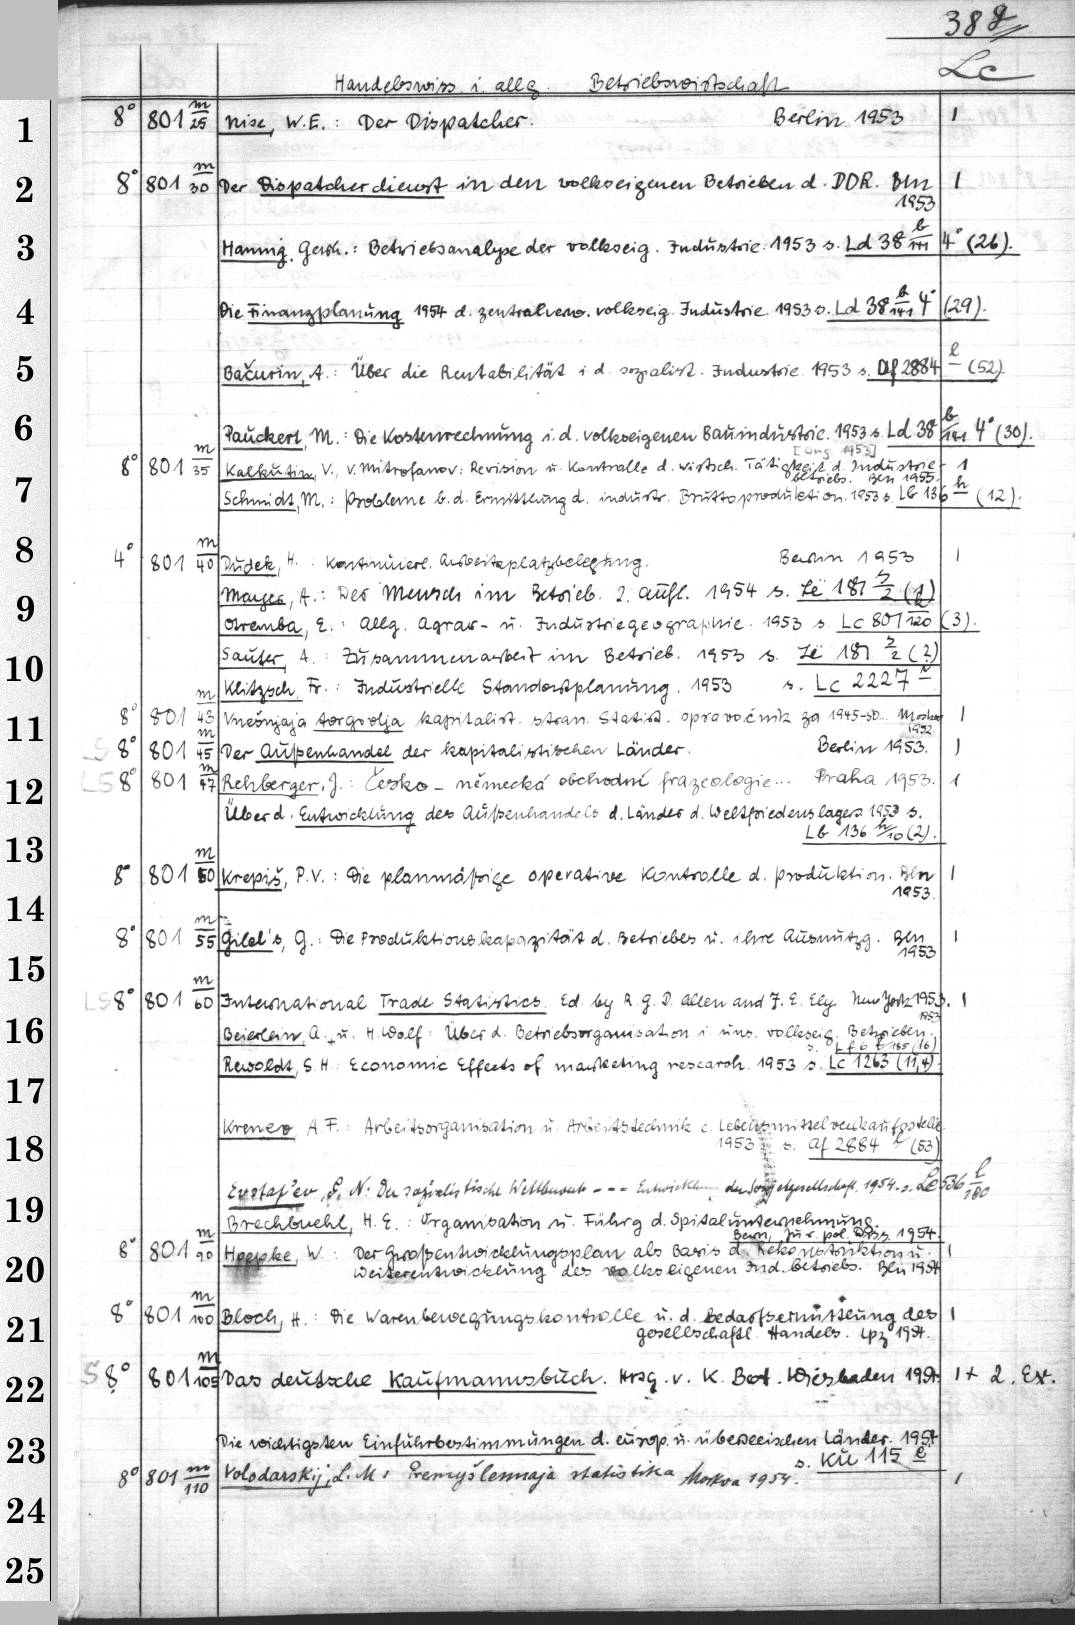 388
Lc
Handelswiss. i. allg. Betriebswirtschaft
1 8° 801 m/25 Nise, W.E.: Der Dispatcher. Berlin 1953 1
2 8° 801 m/30 Der Dispatcherdienst in den volkseigenen Betrieben d. DDR. Bln 1
1953
3 Hannig, Gerh.: Betriebsanalyse der volkseig. Industrie. 1953 s. Ld 38 b/141 4° (26).
4 Die Finanzplanung 1954 d. zentralverw. volkseig. Industrie. 1953 s. Ld 38 b/141 4° (29).
5 Bačurin, A.: Über die Rentabilität i. d. sozialist. Industrie 1953 s. Af 2884 l (52).
6 Pauckert, M.: Die Kostenrechnung i. d. volkseigenen Bauindustrie. 1953 s. Ld 38 b/141 4° (30).
[ 1953]
8° 801 m/35 Kalkutin, V., V. Mitrofanov: Revision u. Kontrolle d. wirtsch. Tätigkeit d. Industrie- 1
betriebs. Bln 1953.
7 Schmidt, M.: Probleme b. d. Ermittlung d. industr. Bruttoproduktion. 1953 s. Lb 136 h (12).
8 4° 801 m/40 Dudek, H.: Kontinuierl. Arbeitsplatzbelegung. Berlin 1953 1
9 A.: Der Mensch im Betrieb. 2. Aufl. 1954 s. Lë 187 2
Otremba, E.: Allg. Agrar- u. Industriegeographie. 1953 s. Lc 801 120 (3).
10 Sauter, A.: Zusammenarbeit im Betrieb. 1953 s. Lë 187 2 (2)
Klitzsch, Fr.: Industrielle Standortplanung. 1953 s. Lc 2227
11 8° 801 m/43 Vnešnjaja torgovlja kapitalist. stran. Statist. spravočnik za 1945-50... Moskva 1
1952
LS 8° 801 m/45 Der Außenhandel der kapitalistischen Länder. Berlin 1953. 1
12 LS 8° 801 m/47 Rehberger, J.: Česko-německá obchodní frazeologie... Praha 1953. 1
Über d. Entwicklung des Außenhandels d. Länder d. Weltfriedenslagers 1953 s.
13 Lb 136 h/10 (2).
8° 801 m/50 Krepiš, P.V.: Die planmäßige operative Kontrolle d. Produktion. Bln 1
1953.
14 8° 801 m/55 Gilel's, G.: Die Produktionskapazität d. Betriebes u. ihre Ausnutzg. Bln 1
1953
15 LS 8° 801 m/60 International Trade Statistics. Ed. by R. G. D. Allen and J. E. Ely. New York 1953. 1
1953
16 Beierlein, A. u. H. Wolf: Über d. Betriebsorganisation i. uns. volkseig. Betrieben.
s. 185 (16)
Rewoldt, S. H.: Economic Effects of marketing research. 1953 s. Lc 1263 (11,4).
17
18 A. F.: Arbeitsorganisation u. Arbeitstechnik e. Lebensmittelverkaufsstelle
1953 s. Af 2884 l (53)
19 Evstaf'ev, N: Der sozialistische Wettbewerb --- Entwicklung der Sowjetgesellschaft. 1954. s. Le 536 l/180
Brechbuehl, H. E.: Organisation u. Führg d. Spitalunternehmung.
Bern, Jur. pol. Diss. 1954.
20 8° 801 m/90 Hoepke, W.: Der Großentwicklungsplan als Basis d. Rekonstruktion u. 1
Weiterentwicklung des volkseigenen Ind. betriebs. Bln 1954
21 8° 801 m/100 Bloch, H.: Die Warenbewegungskontrolle u. d. Bedarfsermittlung des 1
gesellschaftl. Handels. Lpz 1954.
22 S 8° 801 m/105 Das deutsche Kaufmannsbuch. Hrsg. v. K. Bot. Wiesbaden 1954 1+ 2. Ex.
23 Die wichtigsten Einfuhrbestimmungen d. europ. u. überseeischen Länder. 1954
s. Kü 115 e
8° 801 m/110 Volodarskij, L. M.: Premyšlennaja statistika Moskva 1954. 1
24
25